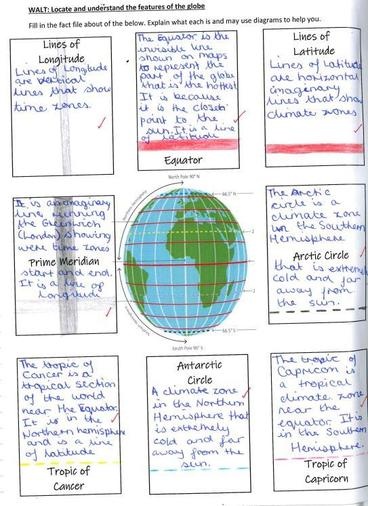 WALT: Locate and understand the features of the globe
Fill in the fact file about of the below. Explain what each is and may use diagrams to help you.
Lines of
Longitude
Lines of Longitude
are vertical
lines that show
time zones.
The Equator is the
invisible line
shown on maps
to represent the
part of the globe
that is the hottest
It is because
it is the closest
point to the
sun. It is a line
of latitude
Equator
Lines of
Latitude
Lines of Latitude
are horizontal
imaginary
lines that show
climate zones.
It is an imaginary
line running
the Greenwich
(London) showing
were time zones
Prime Meridian
start and end.
It is a line of
longitude
North Pole 90° N
66.5° N
66.5° S
South Pole 90° S
The Arctic
circle is a
climate zone
in the Southern
Hemisphere
Arctic Circle
that is extremely
cold and far
away from
the sun.
The tropic of
Cancer is a
tropical section
of the world
near the Equator.
It is in the
Northern hemisphere
and is a line
of latitude
Tropic of
Cancer
Antarctic
Circle
A climate zone
in the Northern
Hemisphere that
is extremely
cold and far
away from the
sun.
The tropic of
Capricorn is
a tropical
climate zone
near the
equator. It is
in the Southern
Hemisphere.
Tropic of
Capricorn